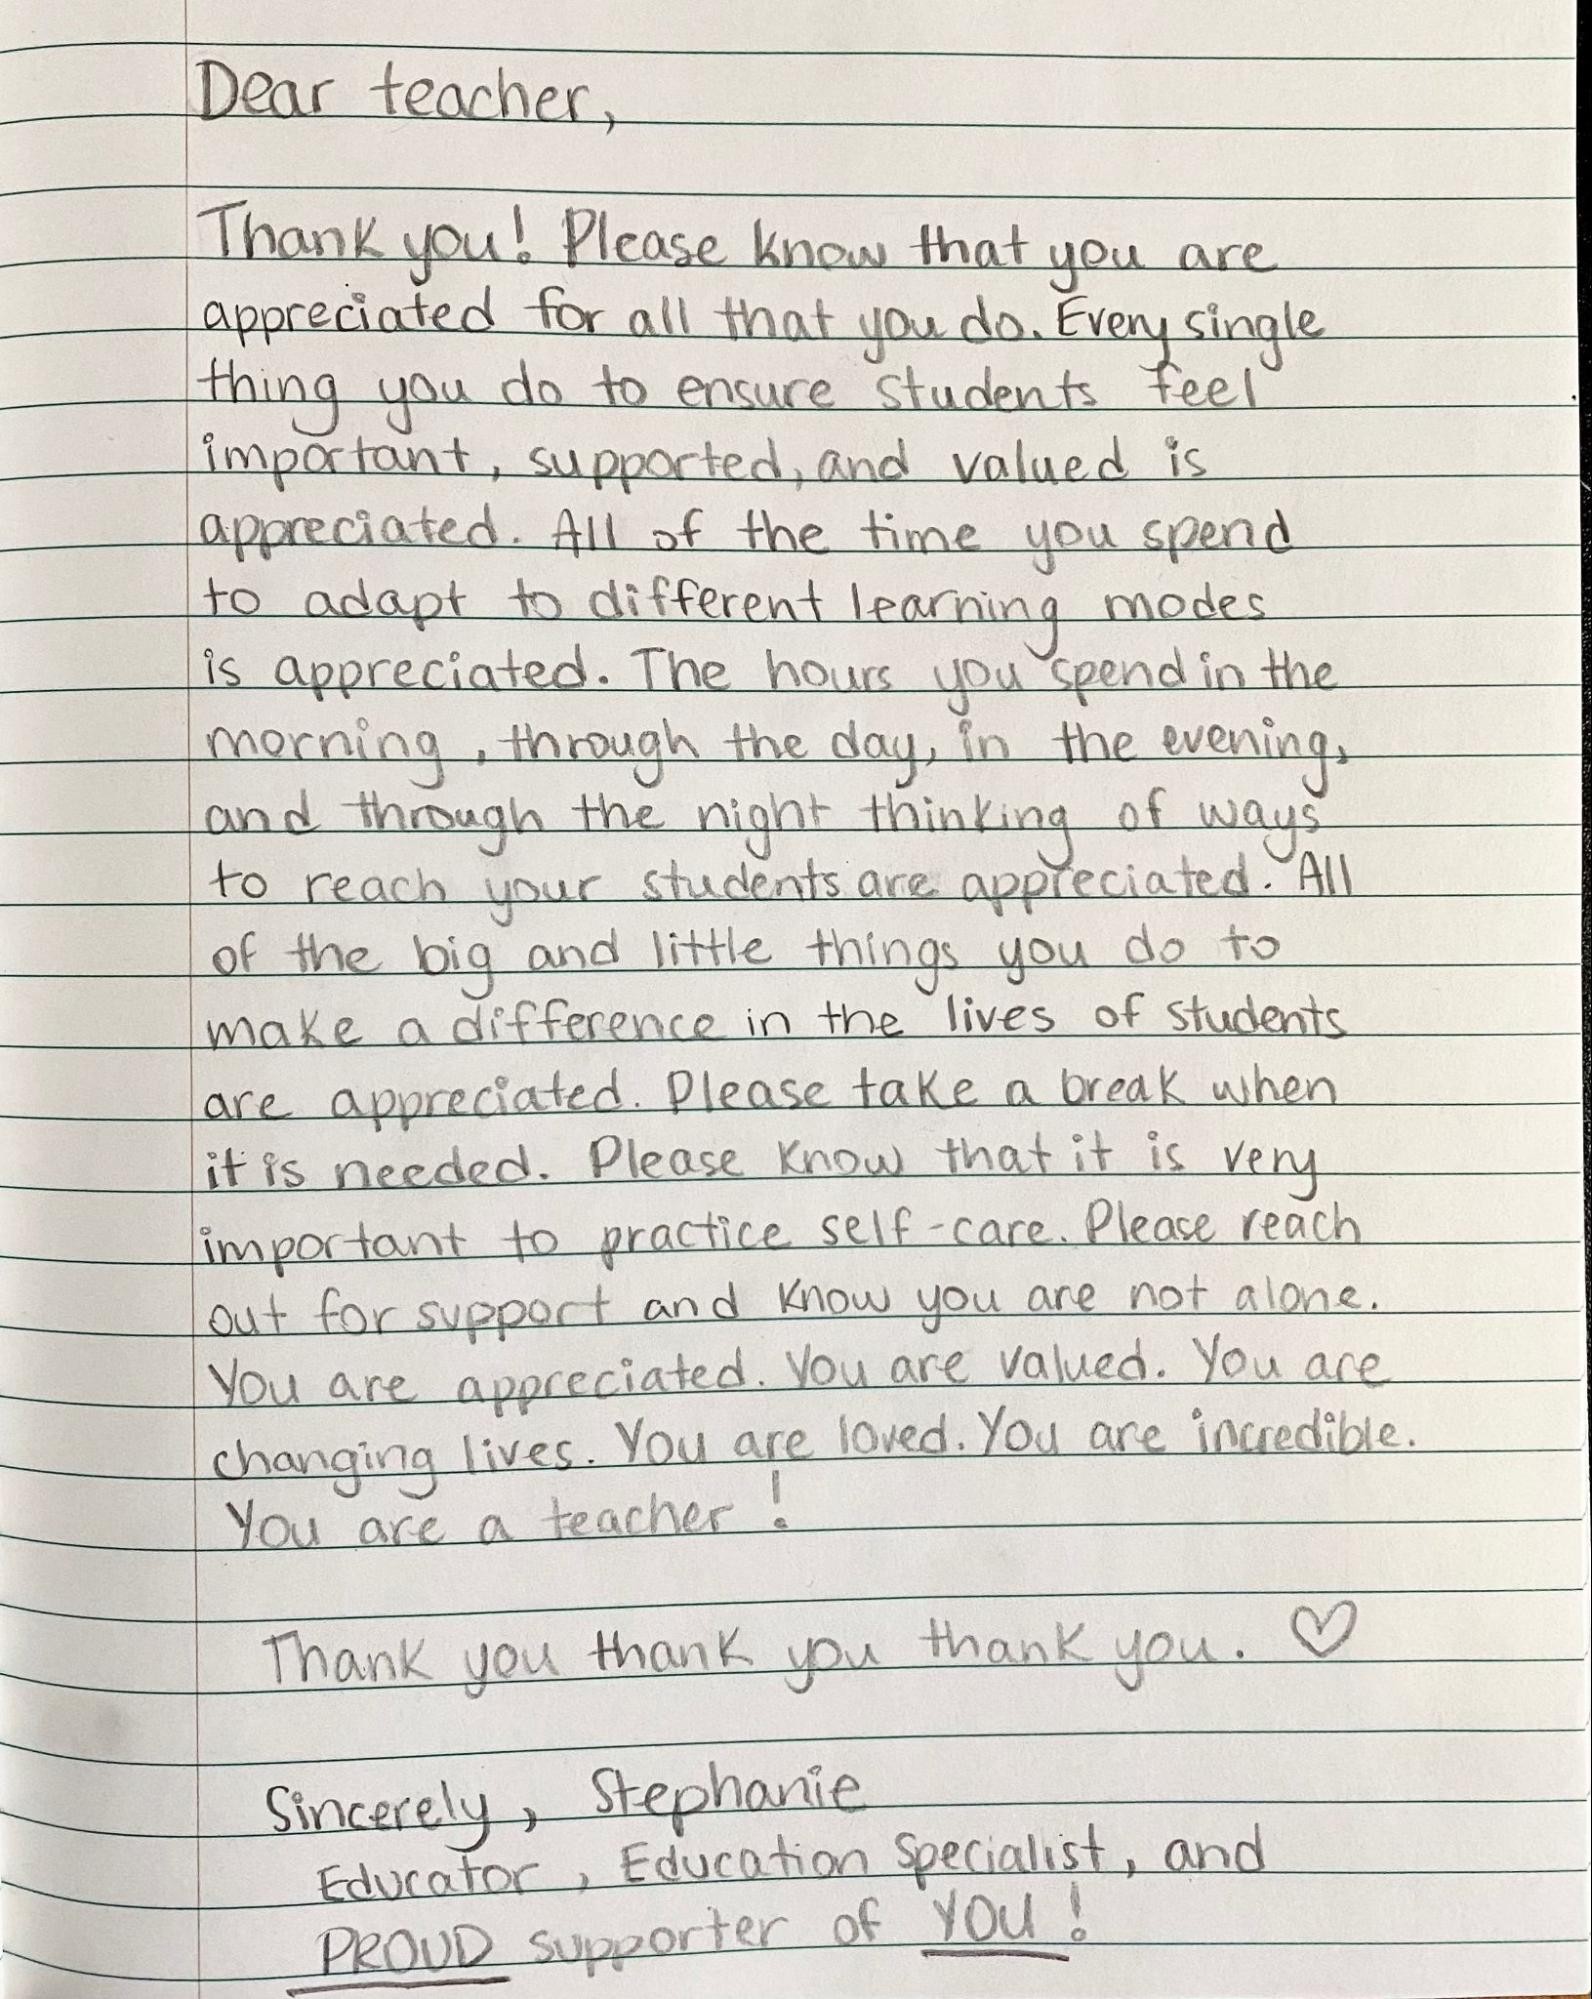 Dear teacher,
Thank you! Please know that you are
appreciated for all that you do. Every single
thing you do to ensure students feel
important, supported, and valued is
appreciated. All of the time you spend
to adapt to different learning modes
is appreciated. The hours you spend in the
morning, through the day, in the evening,
and through the night thinking of ways
to reach your students are appreciated. All
of the big and little things you do to
make a difference in the lives of students
are appreciated. Please take a break when
it is needed. Please know that it is very
important to practice self-care. Please reach
out for support and know you are not alone.
You are appreciated. You are valued. You are
changing lives. You are loved. You are incredible.
You are a teacher!
Thank you thank you thank you. ♡
Sincerely, Stephanie
Educator, Education Specialist, and
PROUD supporter of YOU!